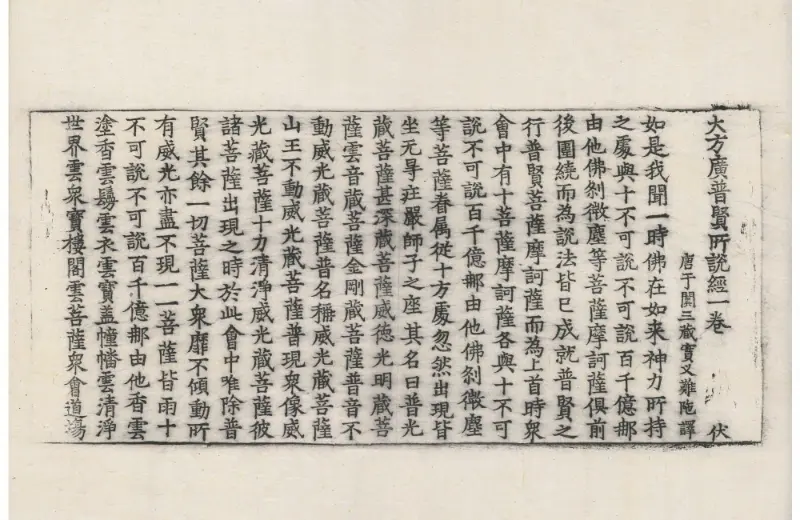 大方廣普賢所說經一卷 伏
唐于闐三藏實叉難陁譯
如是我聞一時佛在如来神力所持
之處與十不可說不可說百千億那
由他佛剎微塵等菩薩摩訶薩俱前
後圍繞而為說法皆已成就普賢之
行普賢菩薩摩訶薩而為上首時衆
會中有十菩薩摩訶薩各與十不可
說不可說百千億那由他佛剎微塵
等菩薩眷属從十方處忽然出現皆
坐无㝵莊嚴師子之座其名曰普光
藏菩薩甚深藏菩薩威德光明藏菩
薩雲音藏菩薩金剛藏菩薩普音不
動威光藏菩薩普名稱威光藏菩薩
山王不動威光藏菩薩普現衆像威
光藏菩薩十力清淨威光藏菩薩彼
諸菩薩出現之時於此會中唯除普
賢其餘一切菩薩大衆靡不傾動所
有威光亦盡不現一一菩薩皆雨十
不可說不可說百千億那由他香雲
塗香雲鬘雲衣雲寶盖幢幡雲清淨
世界雲衆寶樓閣雲菩薩衆會道場